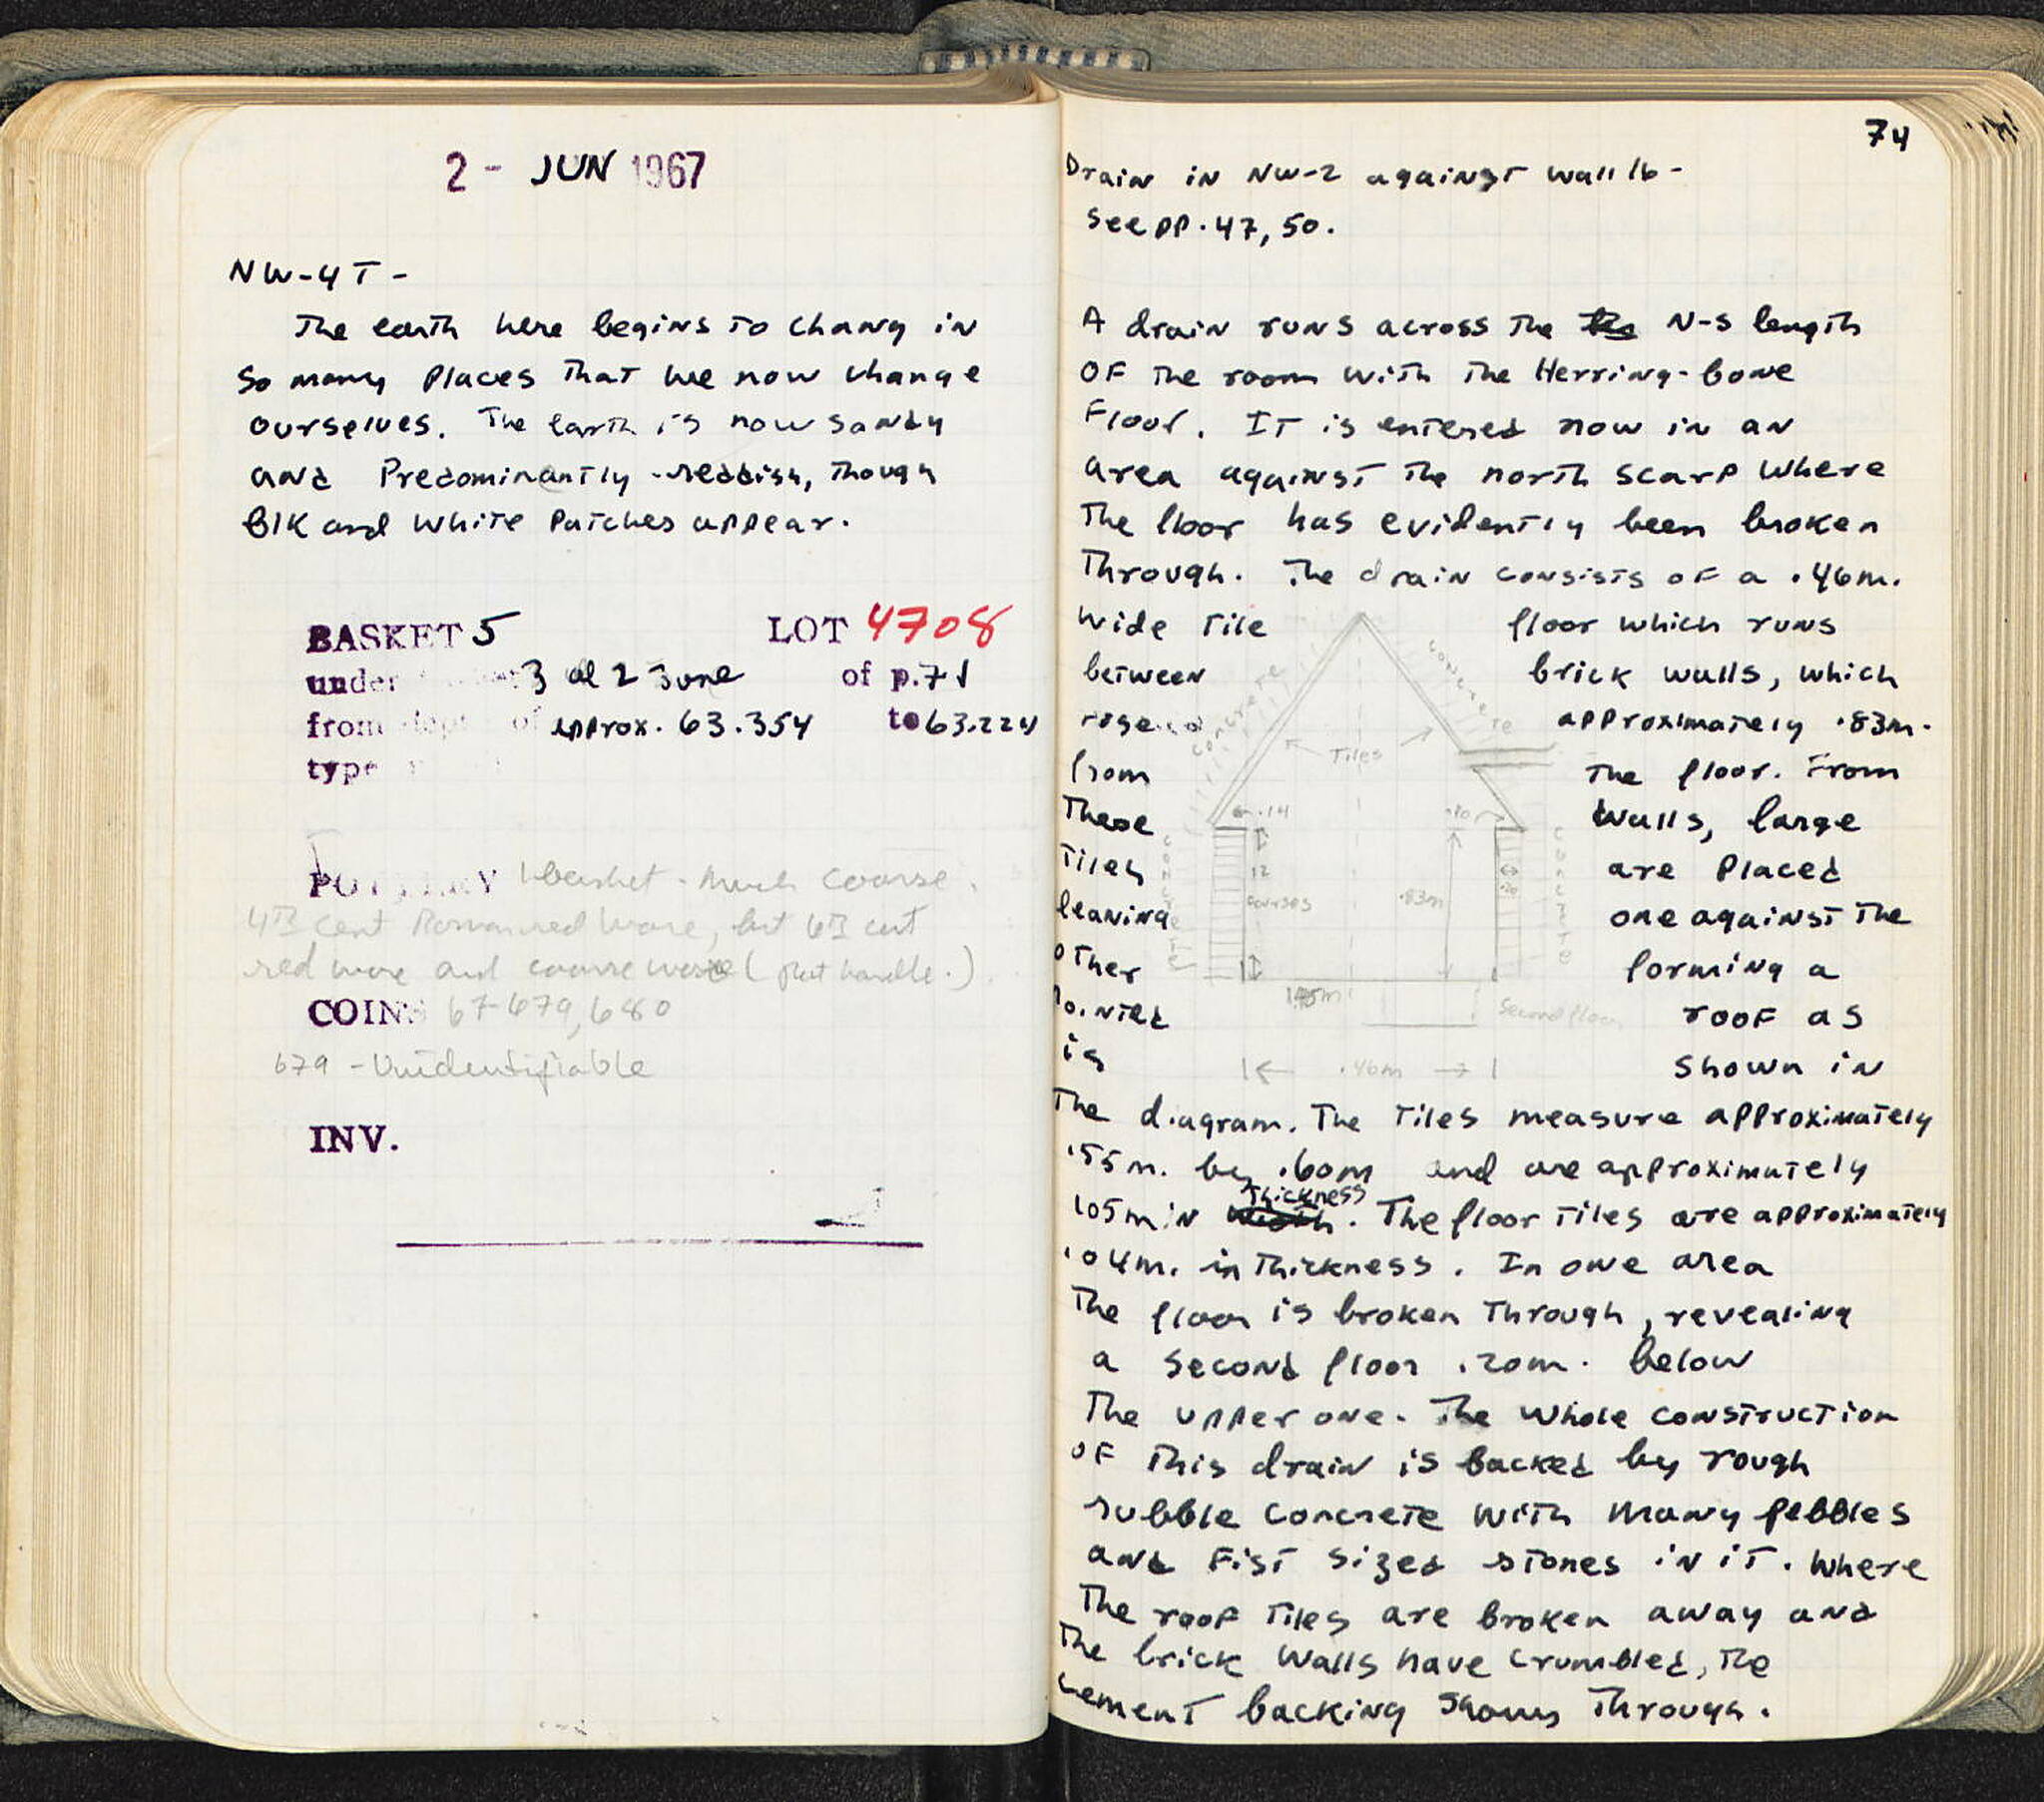 2 - JUN 1967
NW-4T-
The earth here begins to chang in
so many places that we now change
ourselves. The earth is now sandy
and Predominantly reddish, though
Blk and white patches appear.
BASKET 5 LOT 4708
under 3 of 2 June of p.71
from approx. 63.354 to 63.224
type
POTTERY 1 basket - much coarse.
4th cent Roman red ware, but 6th cent
red ware and coarse ware (flat handle.)
COINS 67-679, 680
679 - Unidentifiable
INV.
74
Drain in NW-2 against wall 16-
see pp. 47, 50.
A drain runs across the the N-S length
OF the room with the Herring-bone
Floor. It is entered now in an
area against the north scarp where
the floor has evidently been broken
Through. The drain consists of a .46m.
wide Tile floor which runs
between brick walls, which
rose approximately .83m.
from the floor. From
these walls, large
tiles are placed
leaning one against the
other forming a
pointed roof as
is shown in
the diagram. The tiles measure approximately
.55m. by .60m and are approximately
.05m in width thickness. The floor tiles are approximately
.04m. in thickness. In one area
The floor is broken through, revealing
a second floor .20m. below
The upper one. The whole construction
of this drain is backed by rough
rubble concrete with many pebbles
and Fist sized stones in it. Where
the roof tiles are broken away and
the brick walls have crumbled, the
cement backing shows through.
concrete
concrete
Tiles
.14
.20
concrete
12
courses
.83m
.20
concrete
second floor
.46m